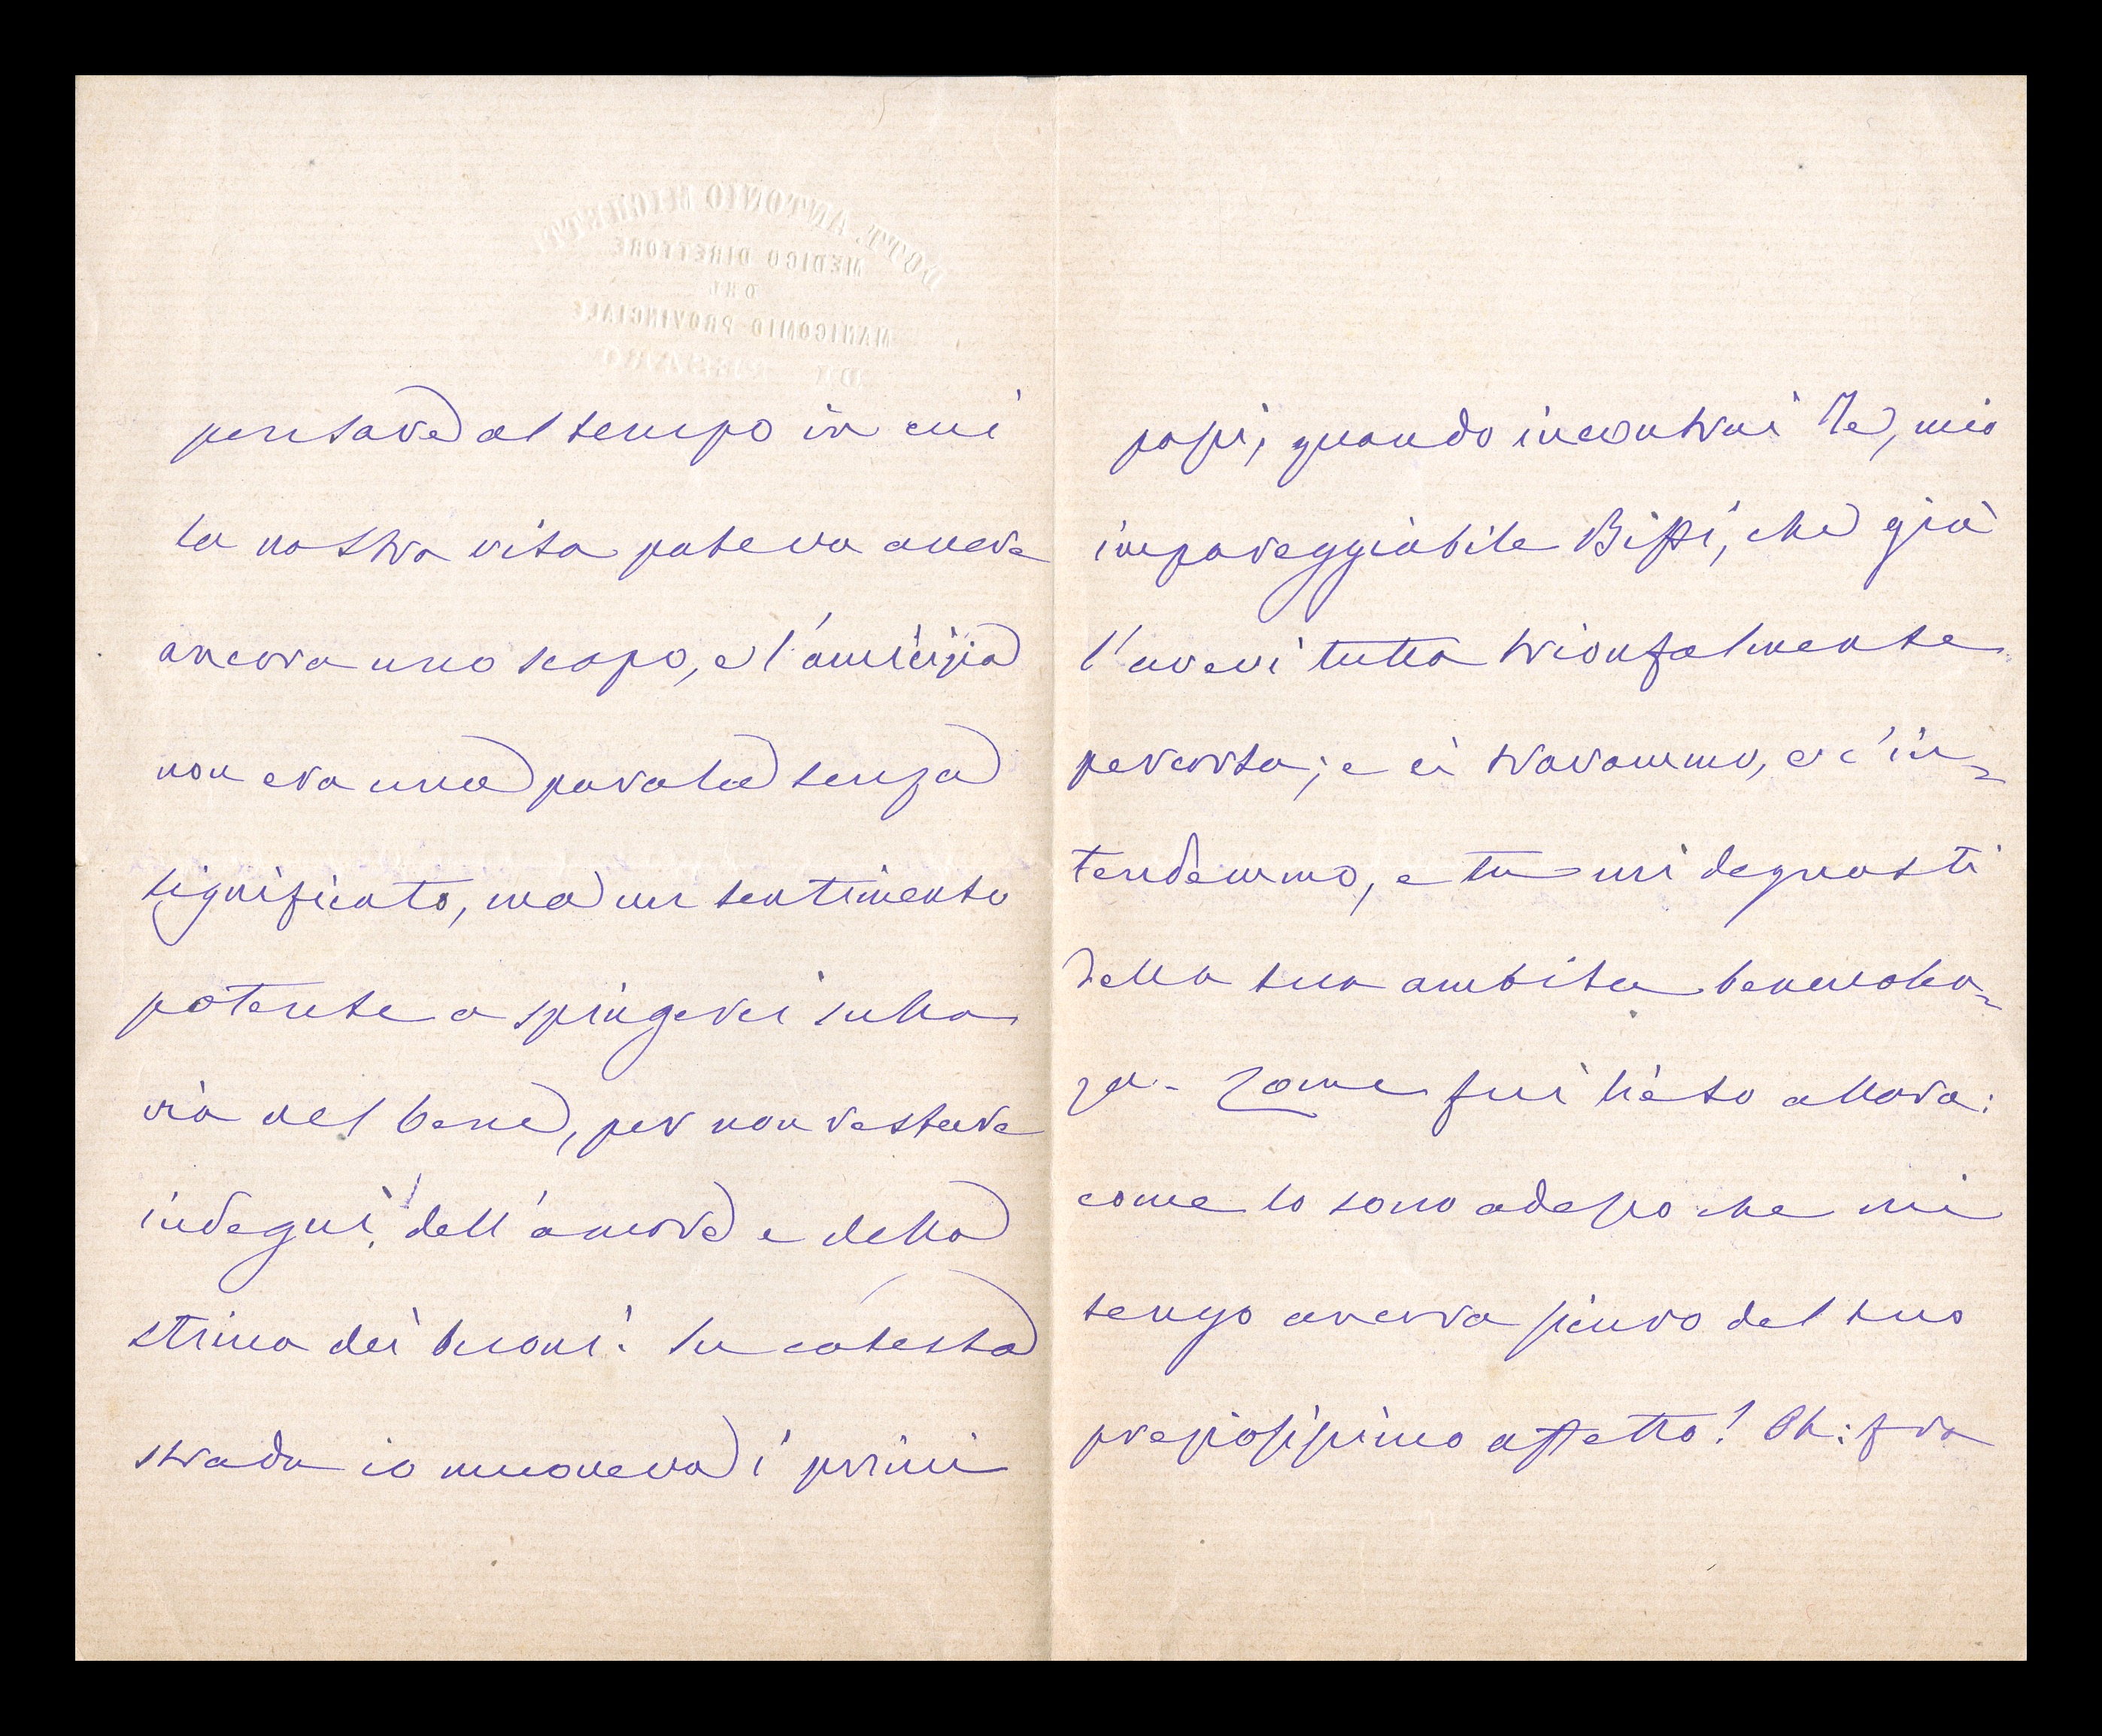 DOTT. ANTONIO MICHETTI
MEDICO DIRETTORE
DEL
MANICOMIO PROVINCIALE
DI PESARO
pensare al tempo in cui
la nostra vita poteva avere
ancora uno scopo, e l'amicizia
non era una parola senza
significato, ma un sentimento
potente a spingerci sulla
via del bene, per non restare
indegni dell'amore e della
stima dei buoni. Su codesta
strada io muoveva i primi
passi, quando incontrai Te, mio
impareggiabile Biffi, che già
l'avevi tutta trionfalmente
percorsa; e ci trovammo, e c'in-
tendemmo, e tu mi degnasti
della tua ambita benevolen-
za. Come fui lieto allora:
come lo sono adesso che mi
tengo ancora sicuro del tuo
preziosissimo affetto! Oh: fra